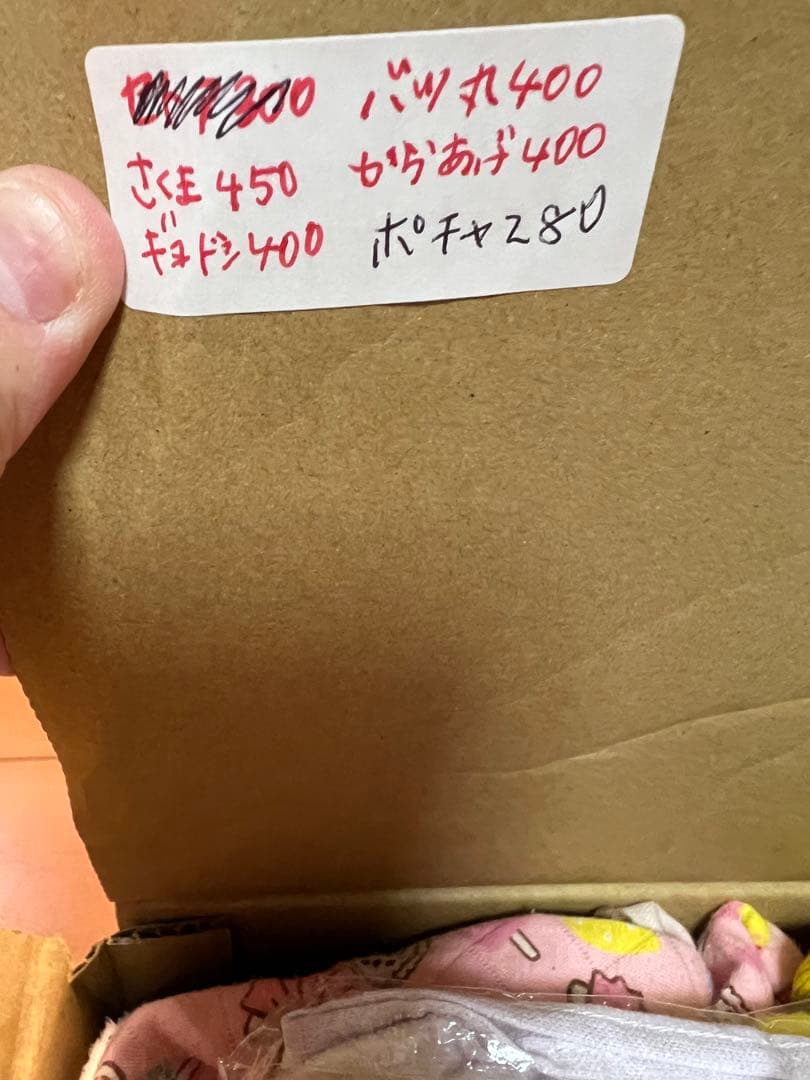 バツ丸400
さく玉450
からあげ400
ギョドン400
ポチャ280